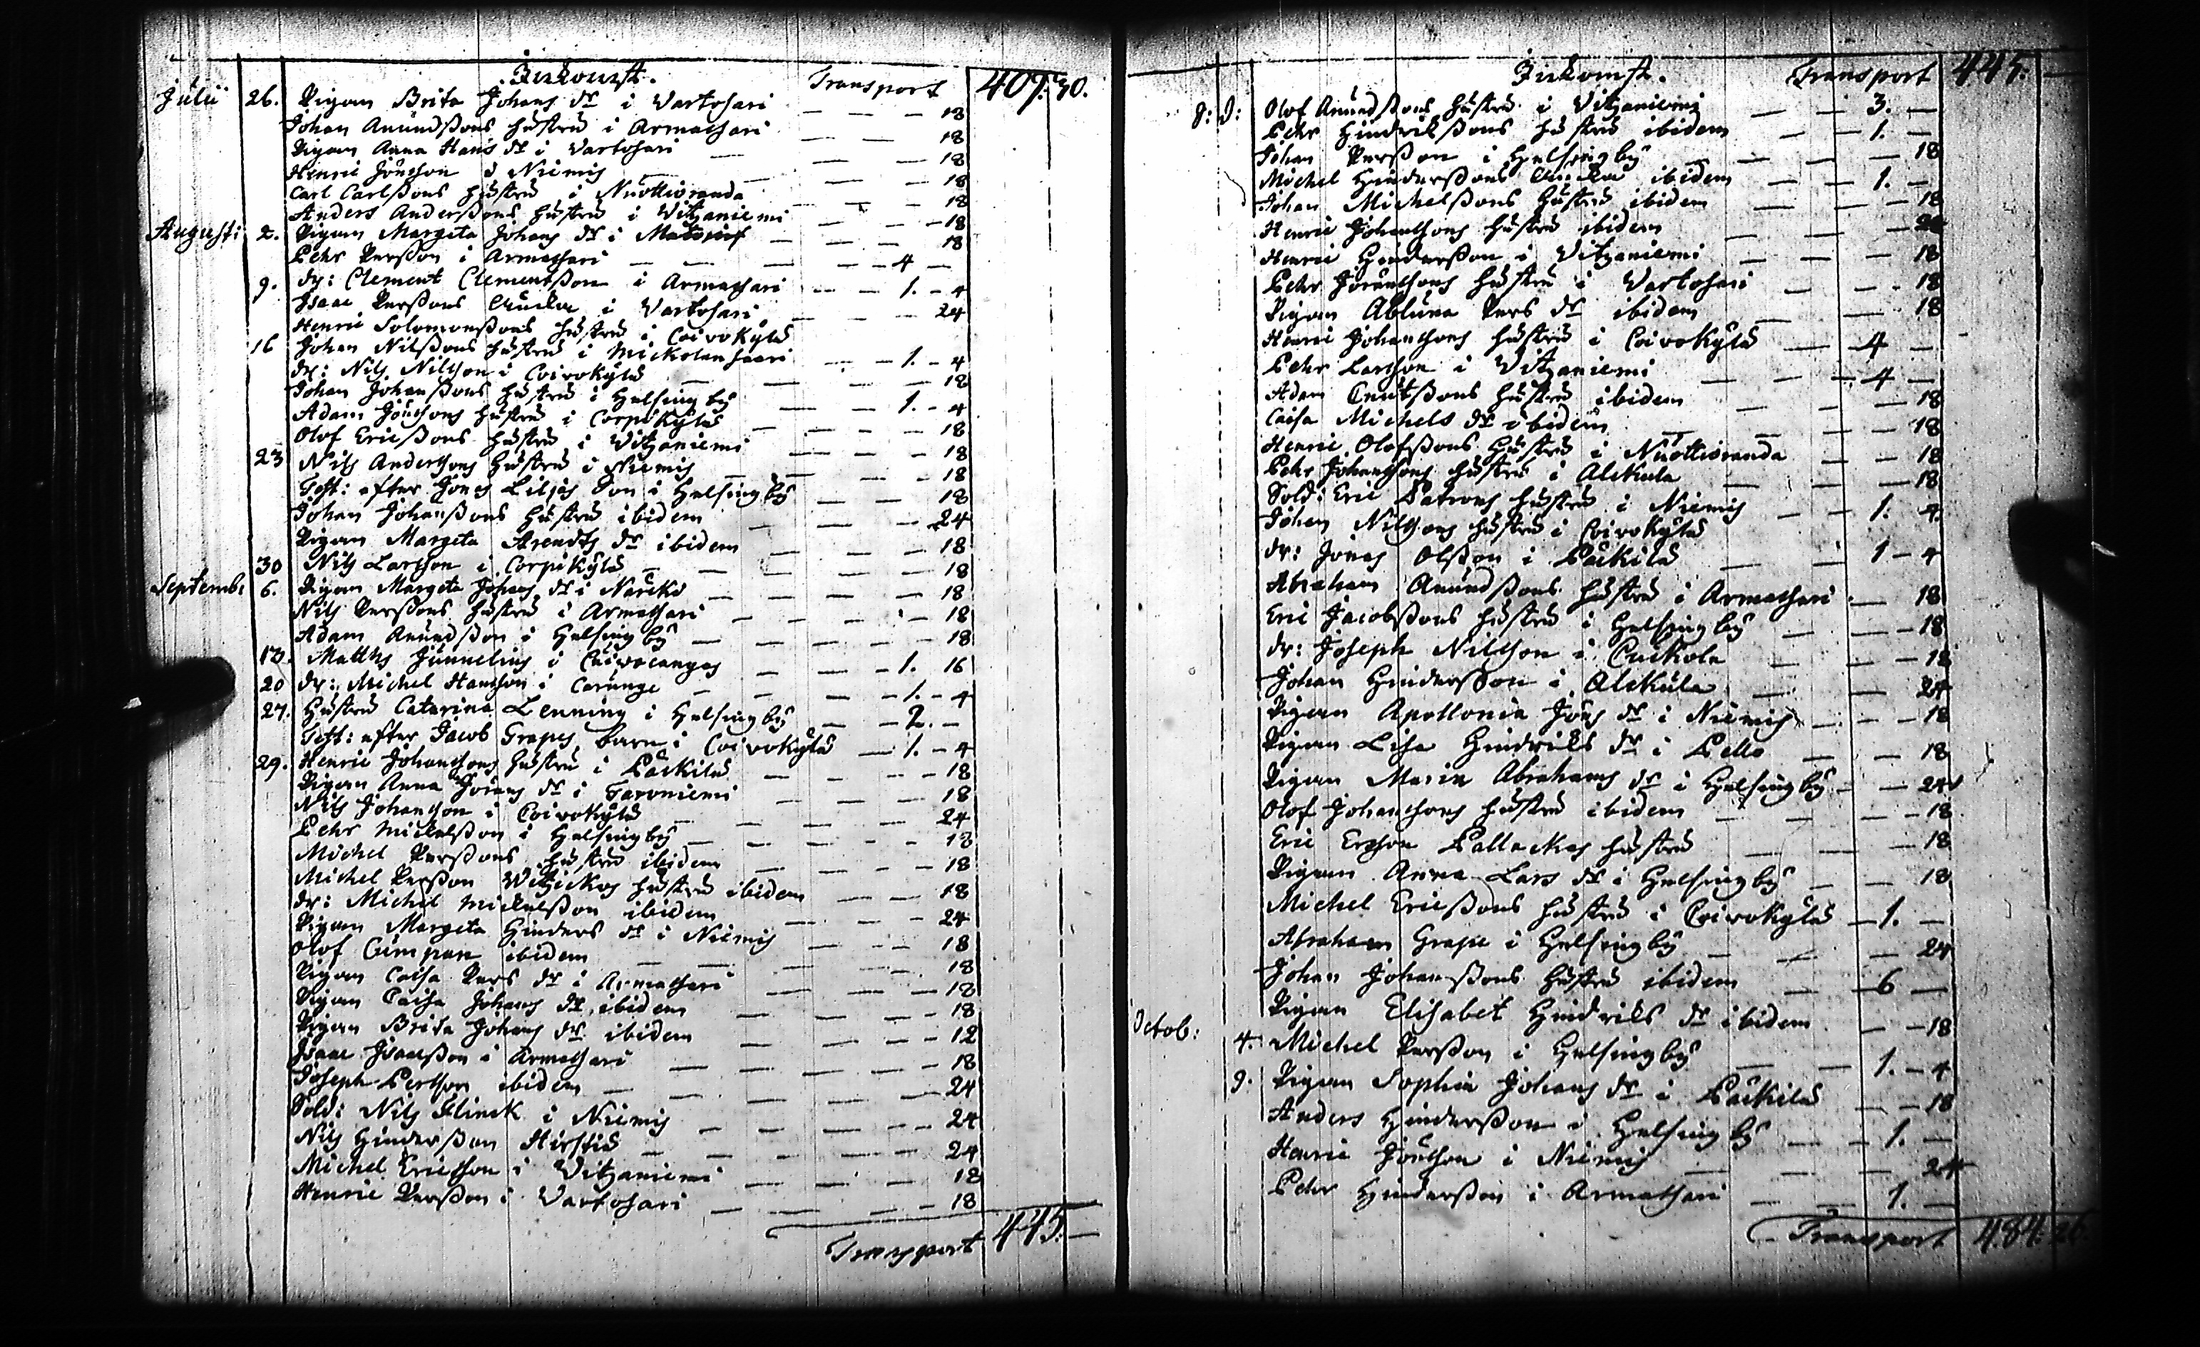 Inkomst. Transport 407: 30.
Julii 26. Pigan Brita Johans dr i Vartosari — — — 18
Johan Anundßons hustru i Armassari — — — 18
Pigan Anna Hans dr i Vartosari — — — 18
Henric Jönsson i Niemis — — — 18
Carl Carlßons hustru i Nuottioranda — — — 18
Anders Anderßons hustru i Vitzaniemi — — — 18
Augusti 2. Pigan Margeta Johans dr i — — — 18
Pehr Perßon i Armassari — — 4 —
9. dr: Clement Clementßon i Armassari — — 1. - 4
Isaac Perßons Encka i Vartosari — — — 24
Henric Solomonßons hustru i Coivokylä
16 Johan Nilßons hustru i Mickolansaari — — 1. - 4
dr: Nils Nilsson i Coivokylä — — — 18
Johan Johanßons hustru i Helsingby — — 1. - 4
Adam Jönsons hustru i Corpikylä — — — 18
Olof Ericßons hustru i Vitzaniemi — — — 18
23 Nils Andersons hustru i Niemis — — — 18
Test: efter Jonas Liljas Son i Helsingby — — — 18
Johan Johanßons hustru ibidem — — — 24
Pigan Margeta Arendts dr ibidem — — — 18
30 Nils Larsson i Corpikylä — — — 18
Septemb: 6. Pigan Margeta Johans dr i Narckä — — — 18
Nils Perßons hustru i Armassari — — — 18
Adam Anundßon i Helsingby — — — 18
13. Matths Junnelius i Coivocangas — — 1. 16
20 dr: Michel Hansson i Carunge — — 1. - 4
27. Hustru Catarina Lenning i Helsingby — — 2. —
Test: efter Jacob Grapes barn i Coivokylä — 1. - 4
29. Henric Johanssons hustru i Päckilä — — — 18
Pigan Anna Jörans dr i Taroniemi — — — 18
Nils Johansson i Coivokylä — — — 24
Pehr Mickelßon i Helsingby — — — 18
Michel Perßons hustru ibidem — — — 18
Michel Perßon Witzickos hustru ibidem — — — 18
dr: Michel Mickelßon ibidem — — — 24
Pigan Margeta Hinders dr i Niemis — — — 18
Olof Cumpan ibidem — — — 18
Pigan Caisa Pers dr i Armassari — — — 18
Pigan Caisa Johans dr ibidem — — — 18
Pigan Brita Johans dr ibidem — — — 12
Isaac Isacßon i Armassari — — — 18
Joseph Person ibidem — — — 24
Sold: Nils Flinck i Niemis — — — 24
Nils Hinderßon Hirstiö — — — 24
Michel Ericsson i Vitzaniemi — — — 18
Henric Perßon i Vartosari — — — 18
Transport 445. —
Inkomst. Transport 445. —
d: d: Olof Anundßons hustru i Vitzaniemi — 3. —
Pehr Hindrikßons hustru ibidem — — 1. —
Johan Perßon i Helsingby — — — 18
Michel Hinderßons Encka ibidem — — 1. —
Johan Michelßons hustru ibidem — — — 18
Henric Johanssons hustru ibidem — — — 24
Henric Hinderßon i Vitzaniemi — — — 18
Pehr Jöranssons hustru i Vartosari — — — 18
Pigan Abluna Pers dr ibidem — — — 18
Henric Johanssons hustru i Coivokylä — 4 —
Pehr Larsson i Vitzaniemi — — 4 —
Adam Cnutßons hustru ibidem — — — 18
Caisa Michels dr ibidem — — — 18
Henric Olofßons hustru i Nuottioranda — — 18
Pehr Johanssons hustru i Alckula — — — 18
Sold: Eric Patrons hustru i Niemis — 1. 4.
Johan Nilssons hustru i Coivokylä
dr: Jonas Olßon i Päckilä — — 1 - 4
Abraham Anundßons hustru i Armassari — 18
Eric Jacobßons hustru i Helsingby — — — 18
dr: Joseph Nilsson i Cuckola — — — 18
Johan Hinderßon i Alckula — — — 24
Pigan Apollonia Jöns dr i Niemis — — — 18
Pigan Lisa Hindriks dr i Pello — — — 18
Pigan Maria Abrahams dr i Helsingby — — 24
Olof Johanssons hustru ibidem — — — 18
Eric Erßon Pallackas hustru — — — 18
Pigan Anna Lars dr i Helsingby — — — 18
Michel Ericßons hustru i Coivokylä — 1. —
Abraham Grape i Helsingby — — — 24
Johan Johanßons hustru ibidem — — 6 —
Pigan Elisabet Hindriks dr ibidem — — 18
Octob: 4. Michel Perßon i Helsingby — — 1. - 4
9. Pigan Sophia Johans dr i Päckilä — — 18
Anders Hinderßon i Helsingby — — 1. —
Henric Jönsson i Niemis — — — 24
Pehr Hinderßon i Armassari — — 1. —
Transport 484: 26.